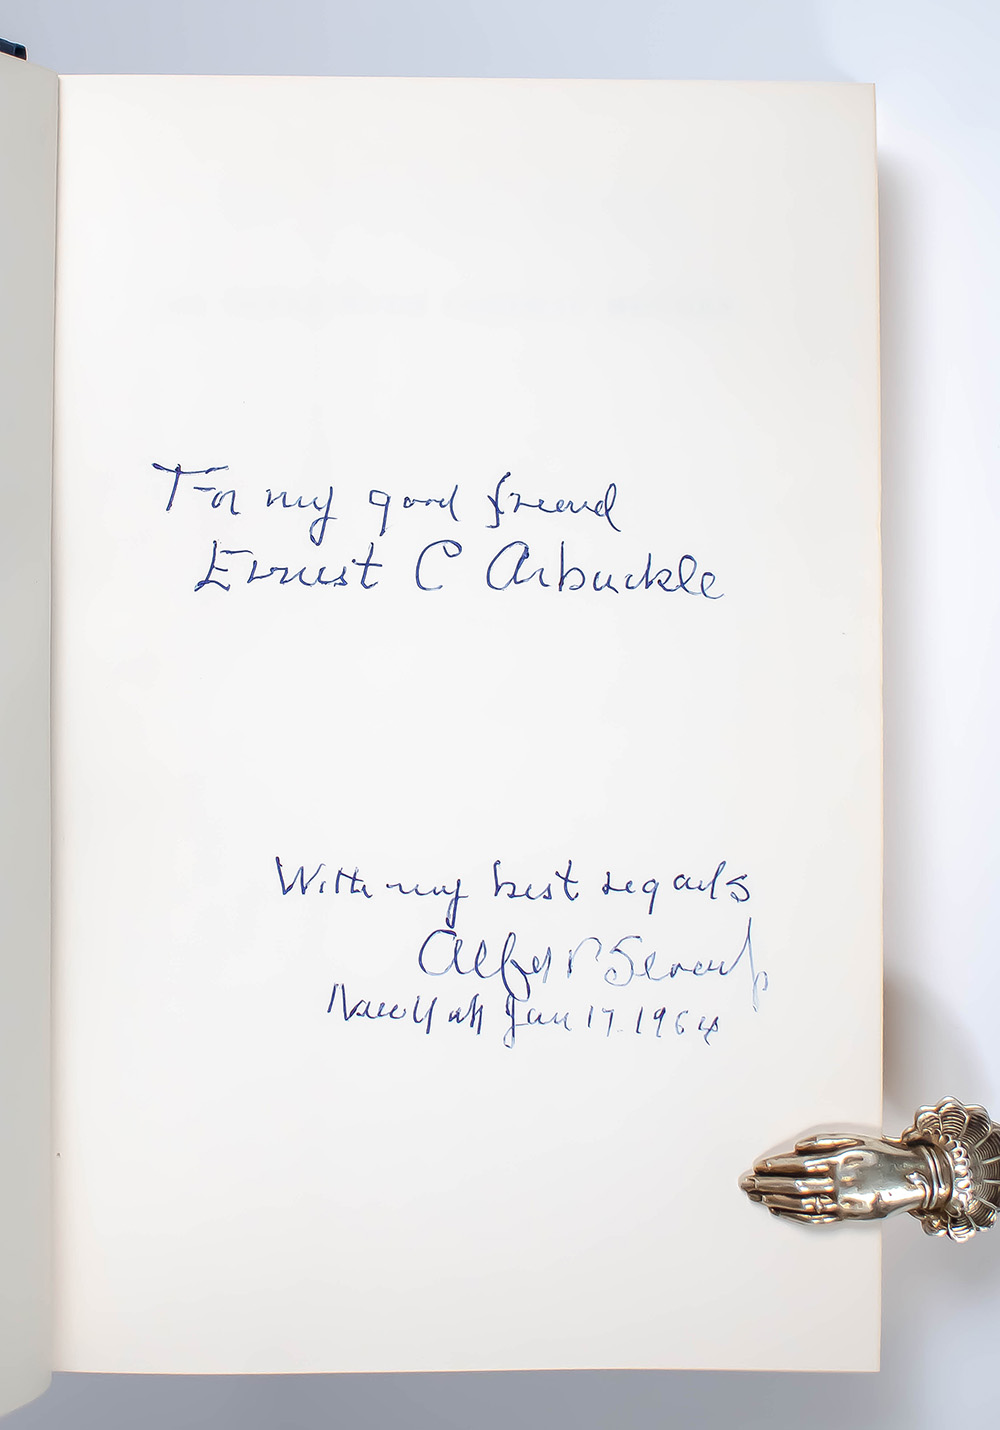 For my good friend
Ernest C Arbuckle
With my best regards
Alfred P Sloan Jr
New York Jan 17. 1964